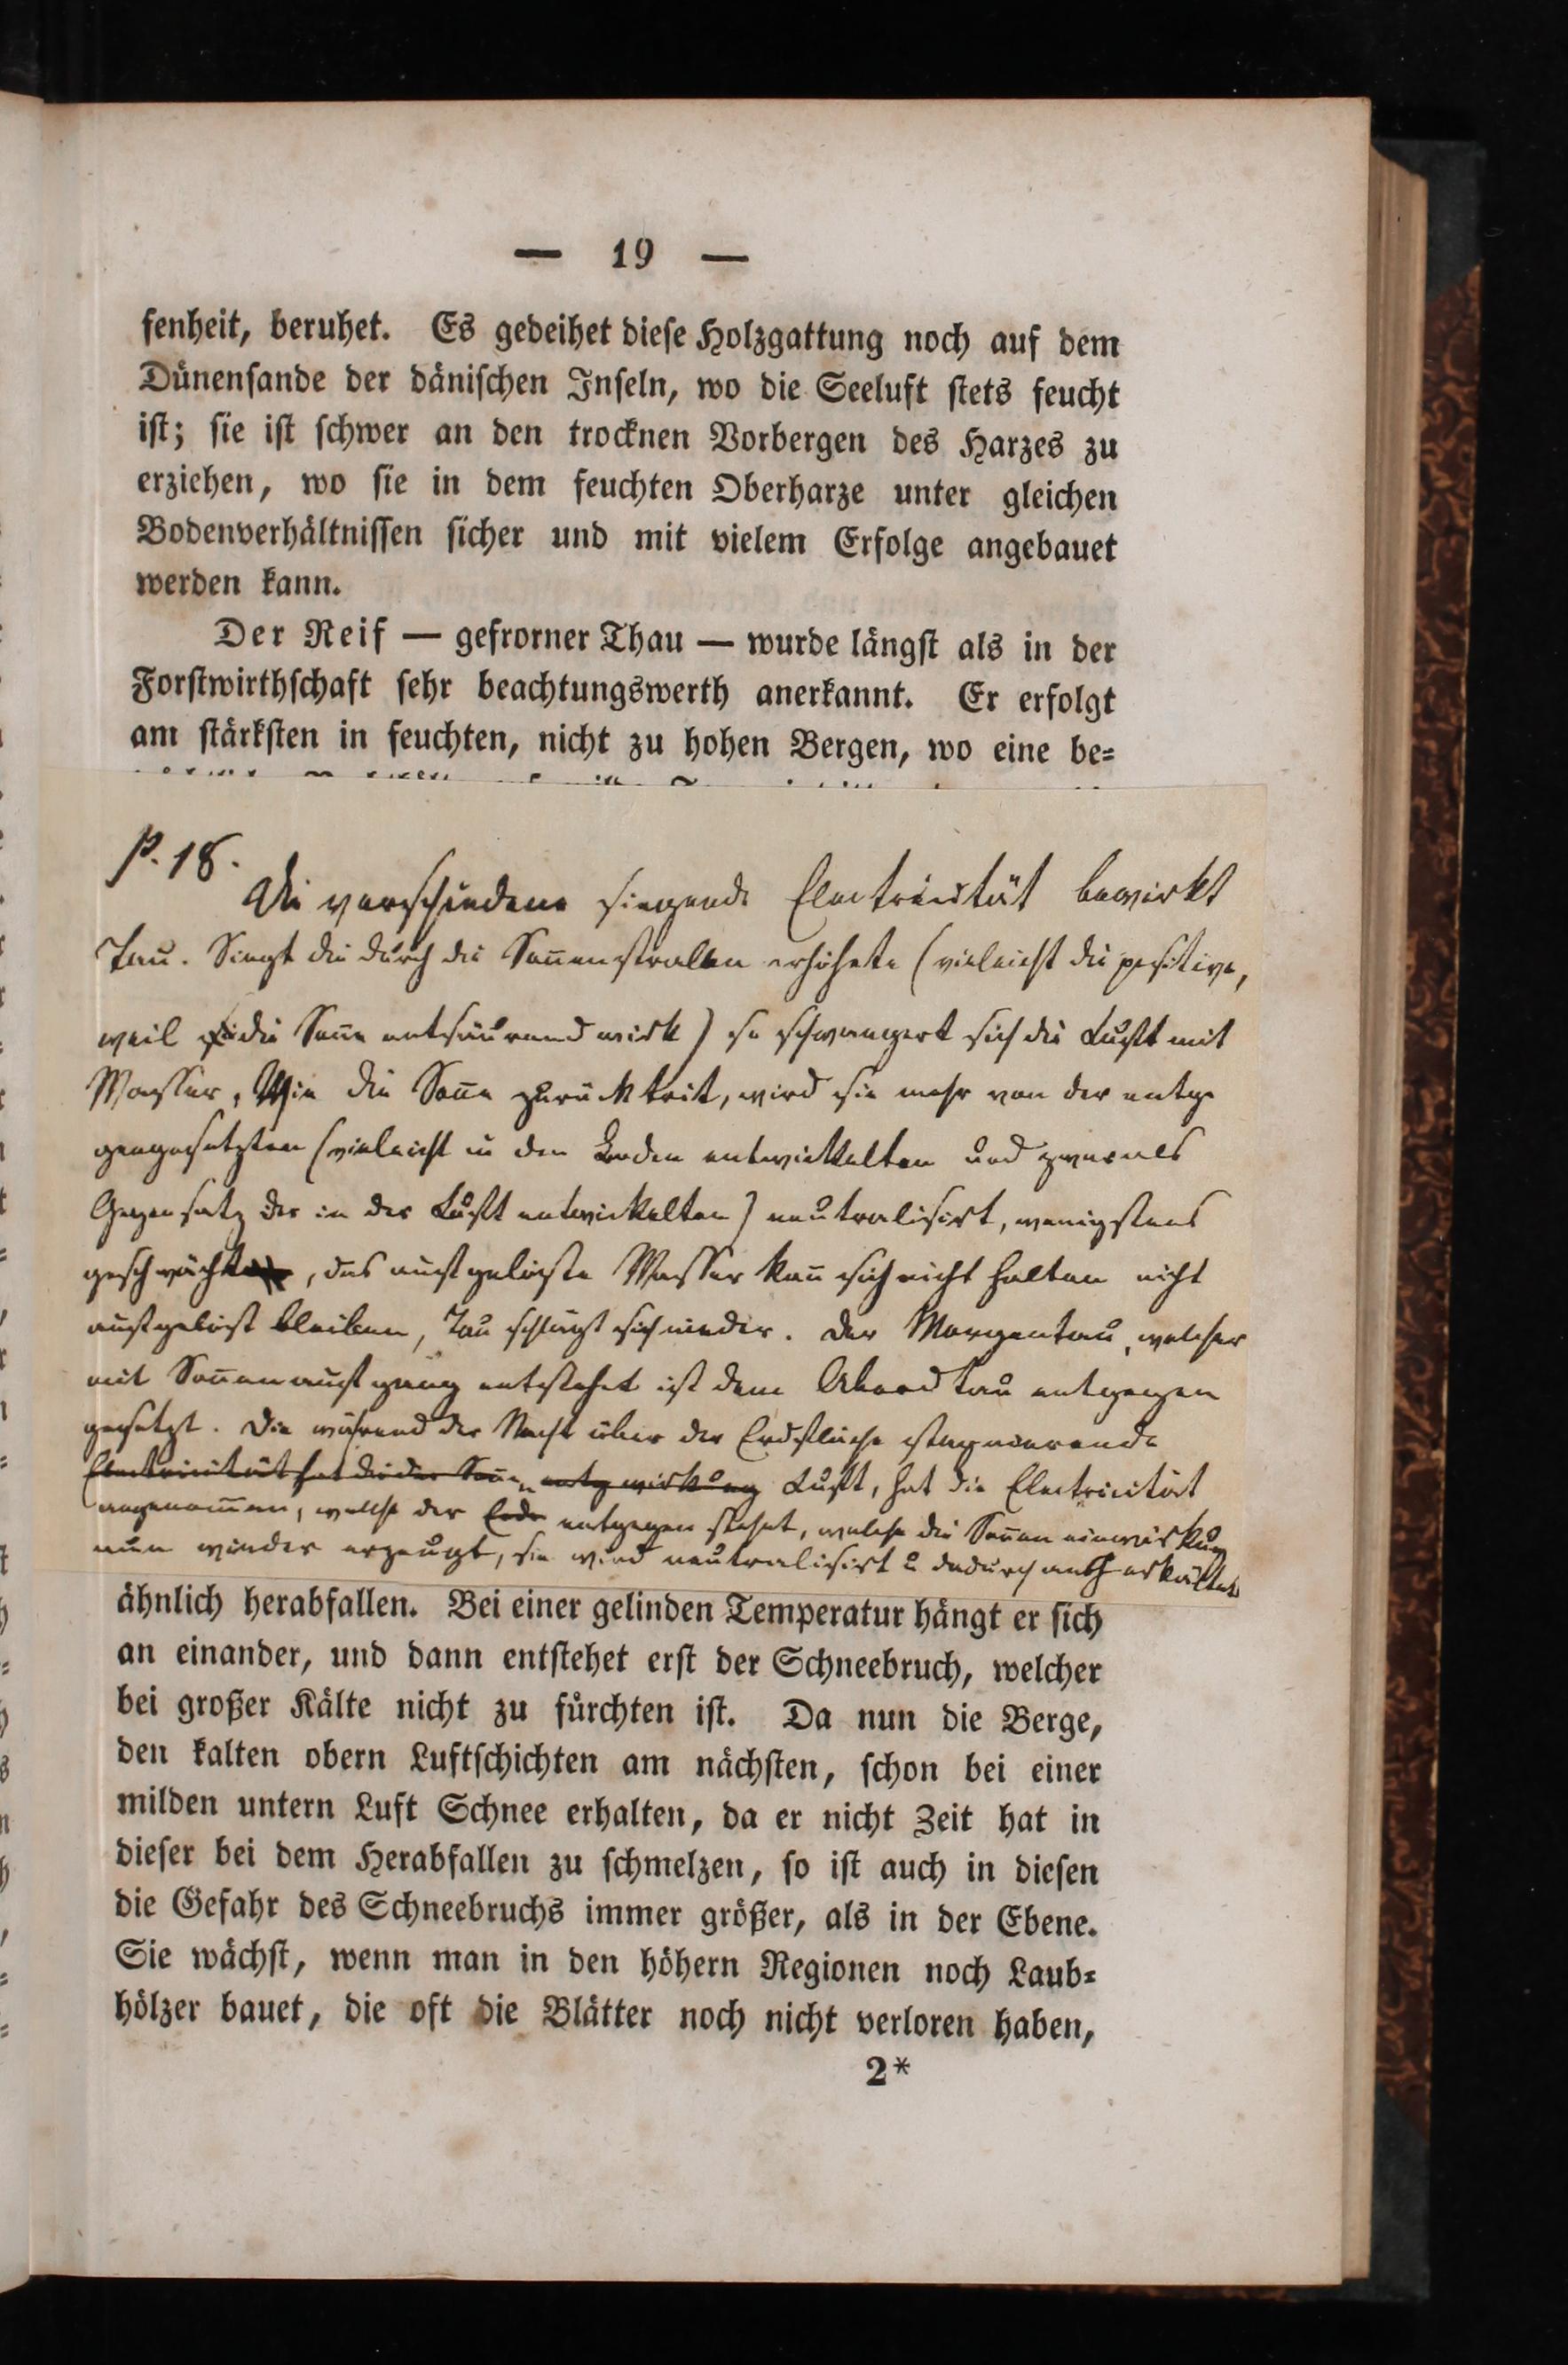 — 19 —
fenheit, beruhet. Es gedeihet diese Holzgattung noch auf dem
Dünensande der dänischen Inseln, wo die Seeluft stets feucht
ist; sie ist schwer an den trocknen Vorbergen des Harzes zu
erziehen, wo sie in dem feuchten Oberharze unter gleichen
Bodenverhältnissen sicher und mit vielem Erfolge angebauet
werden kann.
Der Reif — gefrorner Thau — wurde längst als in der
Forstwirthschaft sehr beachtungswerth anerkannt. Er erfolgt
am stärksten in feuchten, nicht zu hohen Bergen, wo eine be=
p. 18.
Die verschiedene siegende Electricität bewirkt
Tau. Siegt die durch die Sonnenstralen erhöhete (vieleicht die positive,
weil die Sonne entsäurend wirk) so schwangert sich die Luft mit
Wasser, Wie die Sonne zurücktrit, wird sie mehr von der entge
gengesetzten (vieleicht in den Boden entwickelten und zwar als
Gegensatz der in der Luft entwickelten) neutralisirt, wenigstens
geschwächt, das aufgelöste Wasser kann sich nicht halten nicht
aufgelöst bleiben, Tau schlägt sich nieder. Der Morgentau, welcher
mit Sonnenaufgang entstehet ist dem Abendtau entgegen
gesetzt. Die während der Nacht über der Erdfläche stagnierende
Electricität hat die der Sonne entg wirkung Luft, hat die Electricität
angenommen, welche der Erde entgegen stehet, welche die Sonneneinwirkung
nun wieder erzeugt, sie wird neutralisirt u dadurch auch erkältet
ähnlich herabfallen. Bei einer gelinden Temperatur hängt er sich
an einander, und dann entstehet erst der Schneebruch, welcher
bei großer Kälte nicht zu fürchten ist. Da nun die Berge,
den kalten obern Luftschichten am nächsten, schon bei einer
milden untern Luft Schnee erhalten, da er nicht Zeit hat in
dieser bei dem Herabfallen zu schmelzen, so ist auch in diesen
die Gefahr des Schneebruchs immer größer, als in der Ebene.
Sie wächst, wenn man in den höhern Regionen noch Laub=
hölzer bauet, die oft die Blätter noch nicht verloren haben,
2*